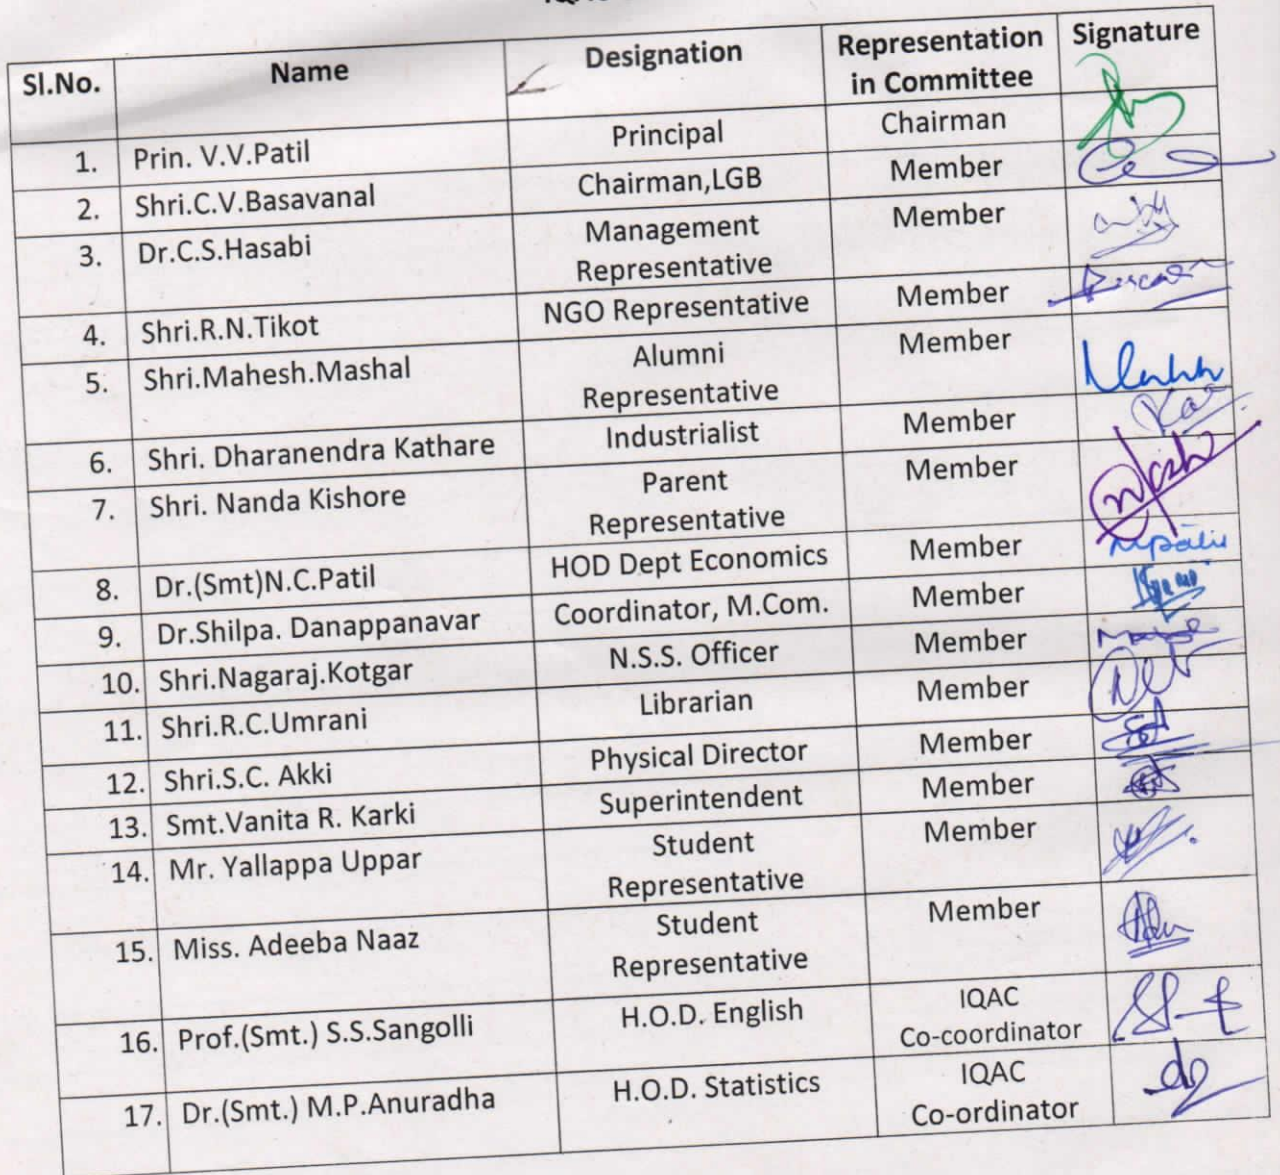 Sl.No. Name Designation Representation in Committee Signature
1. Prin. V.V.Patil Principal Chairman
2. Shri.C.V.Basavanal Chairman,LGB Member
3. Dr.C.S.Hasabi Management Representative Member
4. Shri.R.N.Tikot NGO Representative Member
5. Shri.Mahesh.Mashal Alumni Representative Member
6. Shri. Dharanendra Kathare Industrialist Member
7. Shri. Nanda Kishore Parent Representative Member
8. Dr.(Smt)N.C.Patil HOD Dept Economics Member
9. Dr.Shilpa. Danappanavar Coordinator, M.Com. Member
10. Shri.Nagaraj.Kotgar N.S.S. Officer Member
11. Shri.R.C.Umrani Librarian Member
12. Shri.S.C. Akki Physical Director Member
13. Smt.Vanita R. Karki Superintendent Member
14. Mr. Yallappa Uppar Student Representative Member
15. Miss. Adeeba Naaz Student Representative Member
16. Prof.(Smt.) S.S.Sangolli H.O.D. English IQAC Co-coordinator
17. Dr.(Smt.) M.P.Anuradha H.O.D. Statistics IQAC Co-ordinator